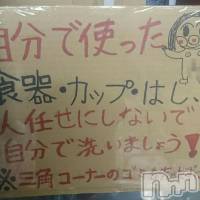 自分で使った
食器・カップ・はし、
人任せにしないで
自分で洗いましょう!
※三角コーナーのゴミ